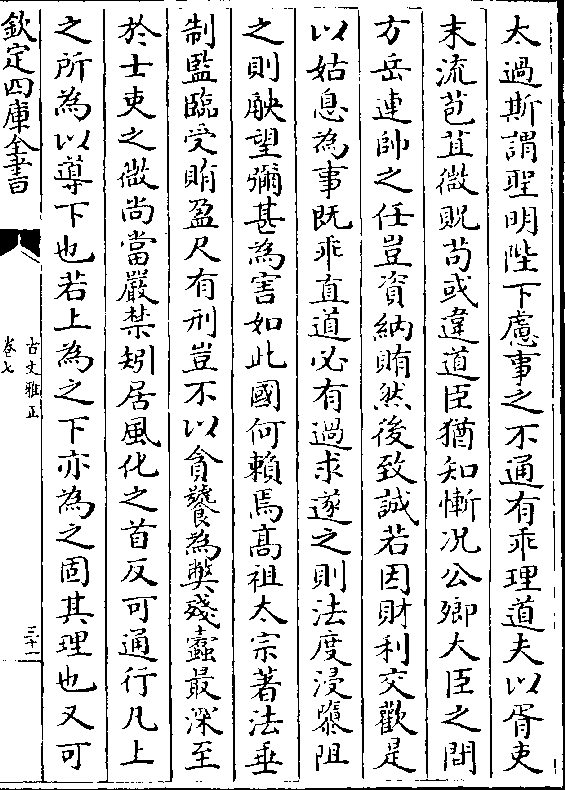 太過斯謂聖明陛下慮事之不通有乖理道夫以胥吏
末流苞苴微貺苟或違道臣猶知慚况公卿大臣之間
方岳連帥之任豈資納賄然後致誠若因財利交歡是
以姑息為事既乖直道必有過求遂之則法度浸隳阻
之則觖望彌甚為害如此國何賴焉髙祖太宗著法垂
制監臨受賄盈尺有刑豈不以貪饕為弊殘蠧最深至
於士吏之微尚當嚴禁矧居風化之首反可通行凡上
之所為以導下也若上為之下亦為之固其理也又可
欽定四庫全書
古文雅正
卷七
三十一